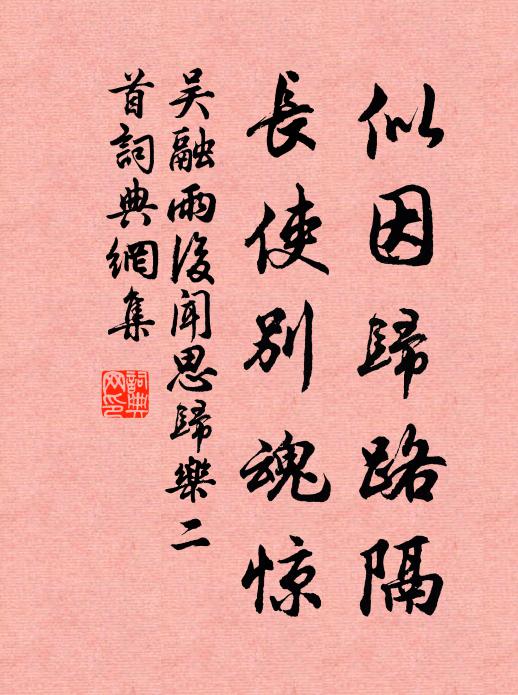 似因歸路隔
長使别魂惊
吴融雨後闻思歸樂二
首詞典網集
詞典网印